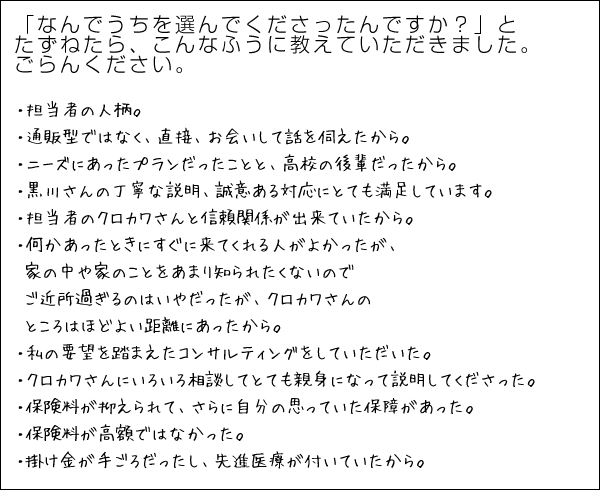 「なんでうちを選んでくださったんですか？」と
たずねたら、こんなふうに教えていただきました。
ごらんください。
・担当者の人柄。
・通販型ではなく、直接、お会いして話を伺えたから。
・ニーズにあったプランだったことと、高校の後輩だったから。
・黒川さんの丁寧な説明、誠意ある対応にとても満足しています。
・担当者のクロカワさんと信頼関係が出来ていたから。
・何かあったときにすぐに来てくれる人がよかったが、
家の中や家のことをあまり知られたくないので
ご近所過ぎるのはいやだったが、クロカワさんの
ところはほどよい距離にあったから。
・私の要望を踏まえたコンサルティングをしていただいた。
・クロカワさんにいろいろ相談してとても親身になって説明してくださった。
・保険料が抑えられて、さらに自分の思っていた保障があった。
・保険料が高額ではなかった。
・掛け金が手ごろだったし、先進医療が付いていたから。